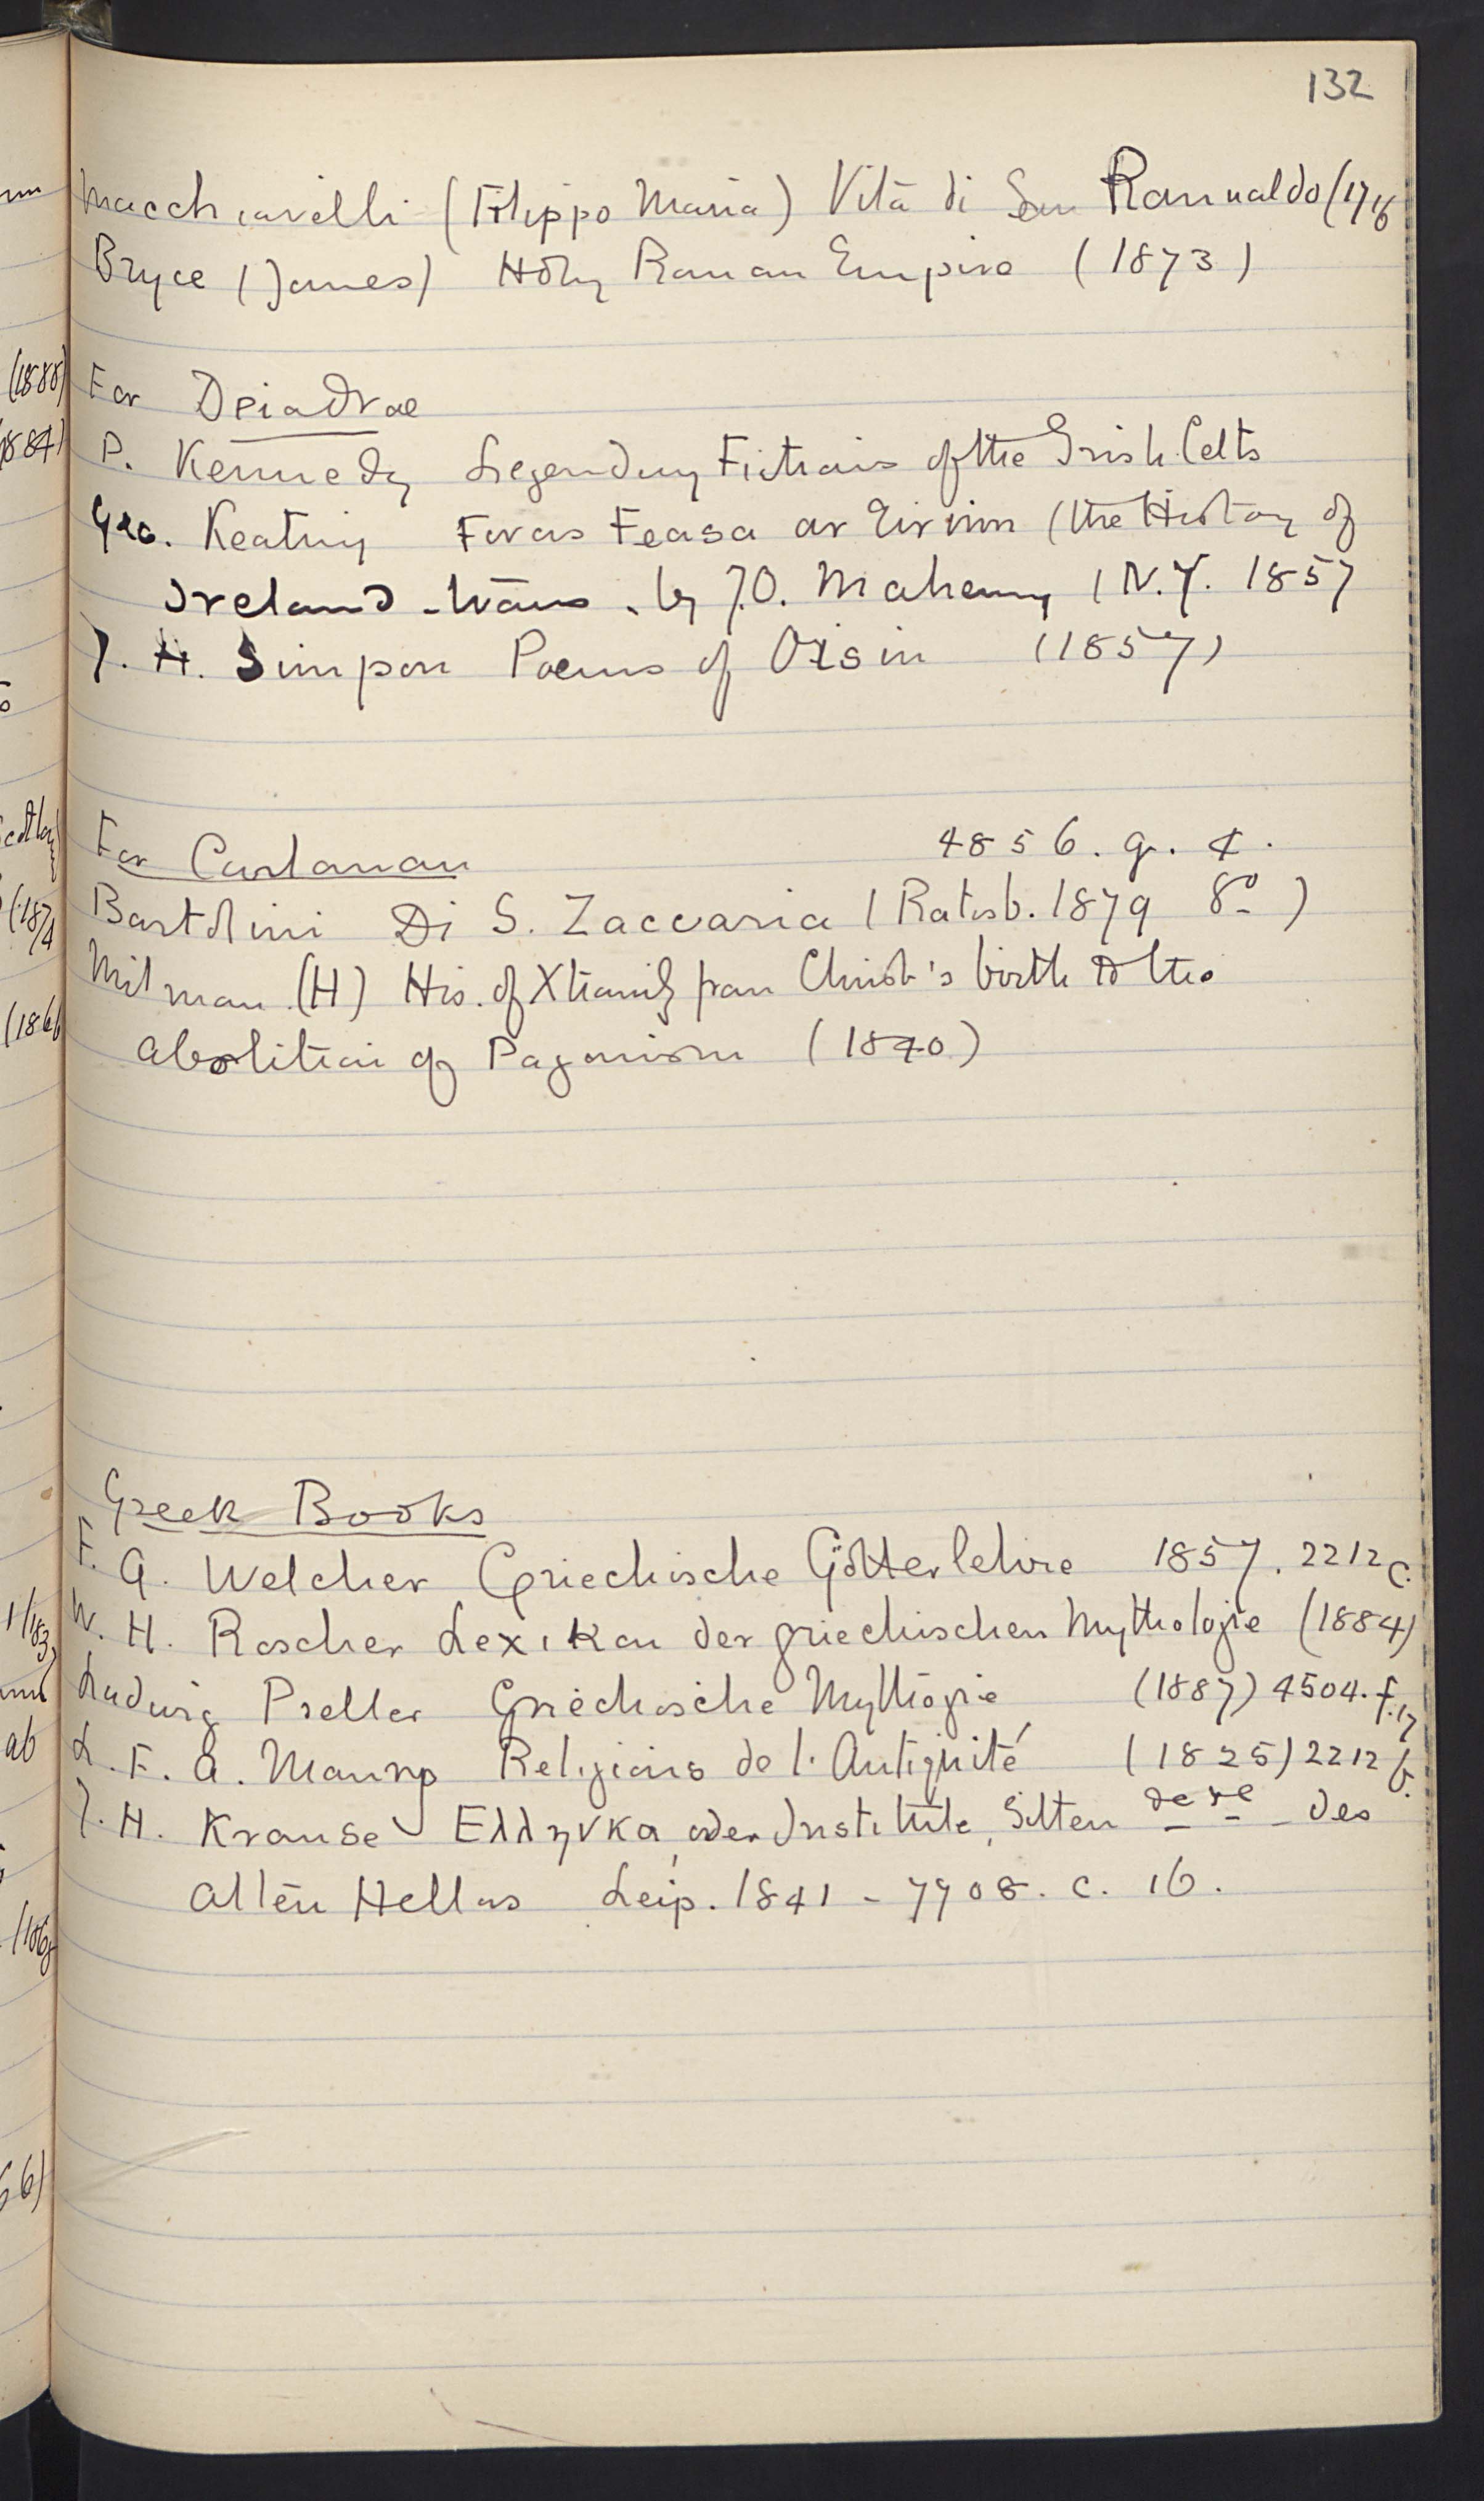 132
Macchiavelli (Filippo Maria) Vita di San Romualdo (17
Bryce (James) Holy Roman Empire (1873)
For Deiadrae
P. Kennedy Legendary Fictions of the Irish Celts
Geo. Keating Foras Feasa ar Eirinn (the History of
Ireland - trans. by J.O. Mahony (N.Y. 1857
J. H. Simpson Poems of Oisin (1857)
For Carlanan 4856. g. 4.
Bartolini Di S. Zaccaria (Ratisb. 1879 8º)
Milman (H) His. of Xtianity from Christ's birth to the
Abolition of Paganism (1840)
Greek Books
F. G. Welcher Griechische Götterlehre 1857. 2212 c.
W. H. Roscher Lexikon der griechischen Mythologie (1884)
Ludwig Preller Griechische Mythogie (1887) 4504. f. 17
L. F. A. Maury Religions de l'Antiquité (1825) 2212 b.
J. H. Krause Ελληνκα, oder Institute, Sitten des
alten Hellas Leip. 1841 - 7908. c. 16.